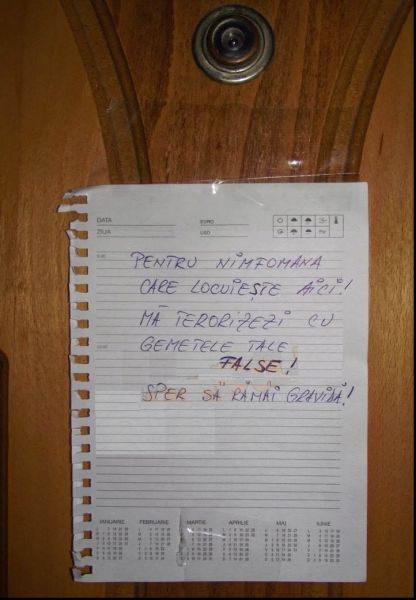 DATA
EURO
ZIUA
USD
PENTRU NIMFOMANA
CARE LOCUIEȘTE AICI!
MĂ TERORIZEZI CU
GEMETELE TALE
FALSE!
SPER SĂ RĂMĂI GRAVIDĂ!
IANUARIE FEBRUARIE MARTIE APRILIE MAI IUNIE